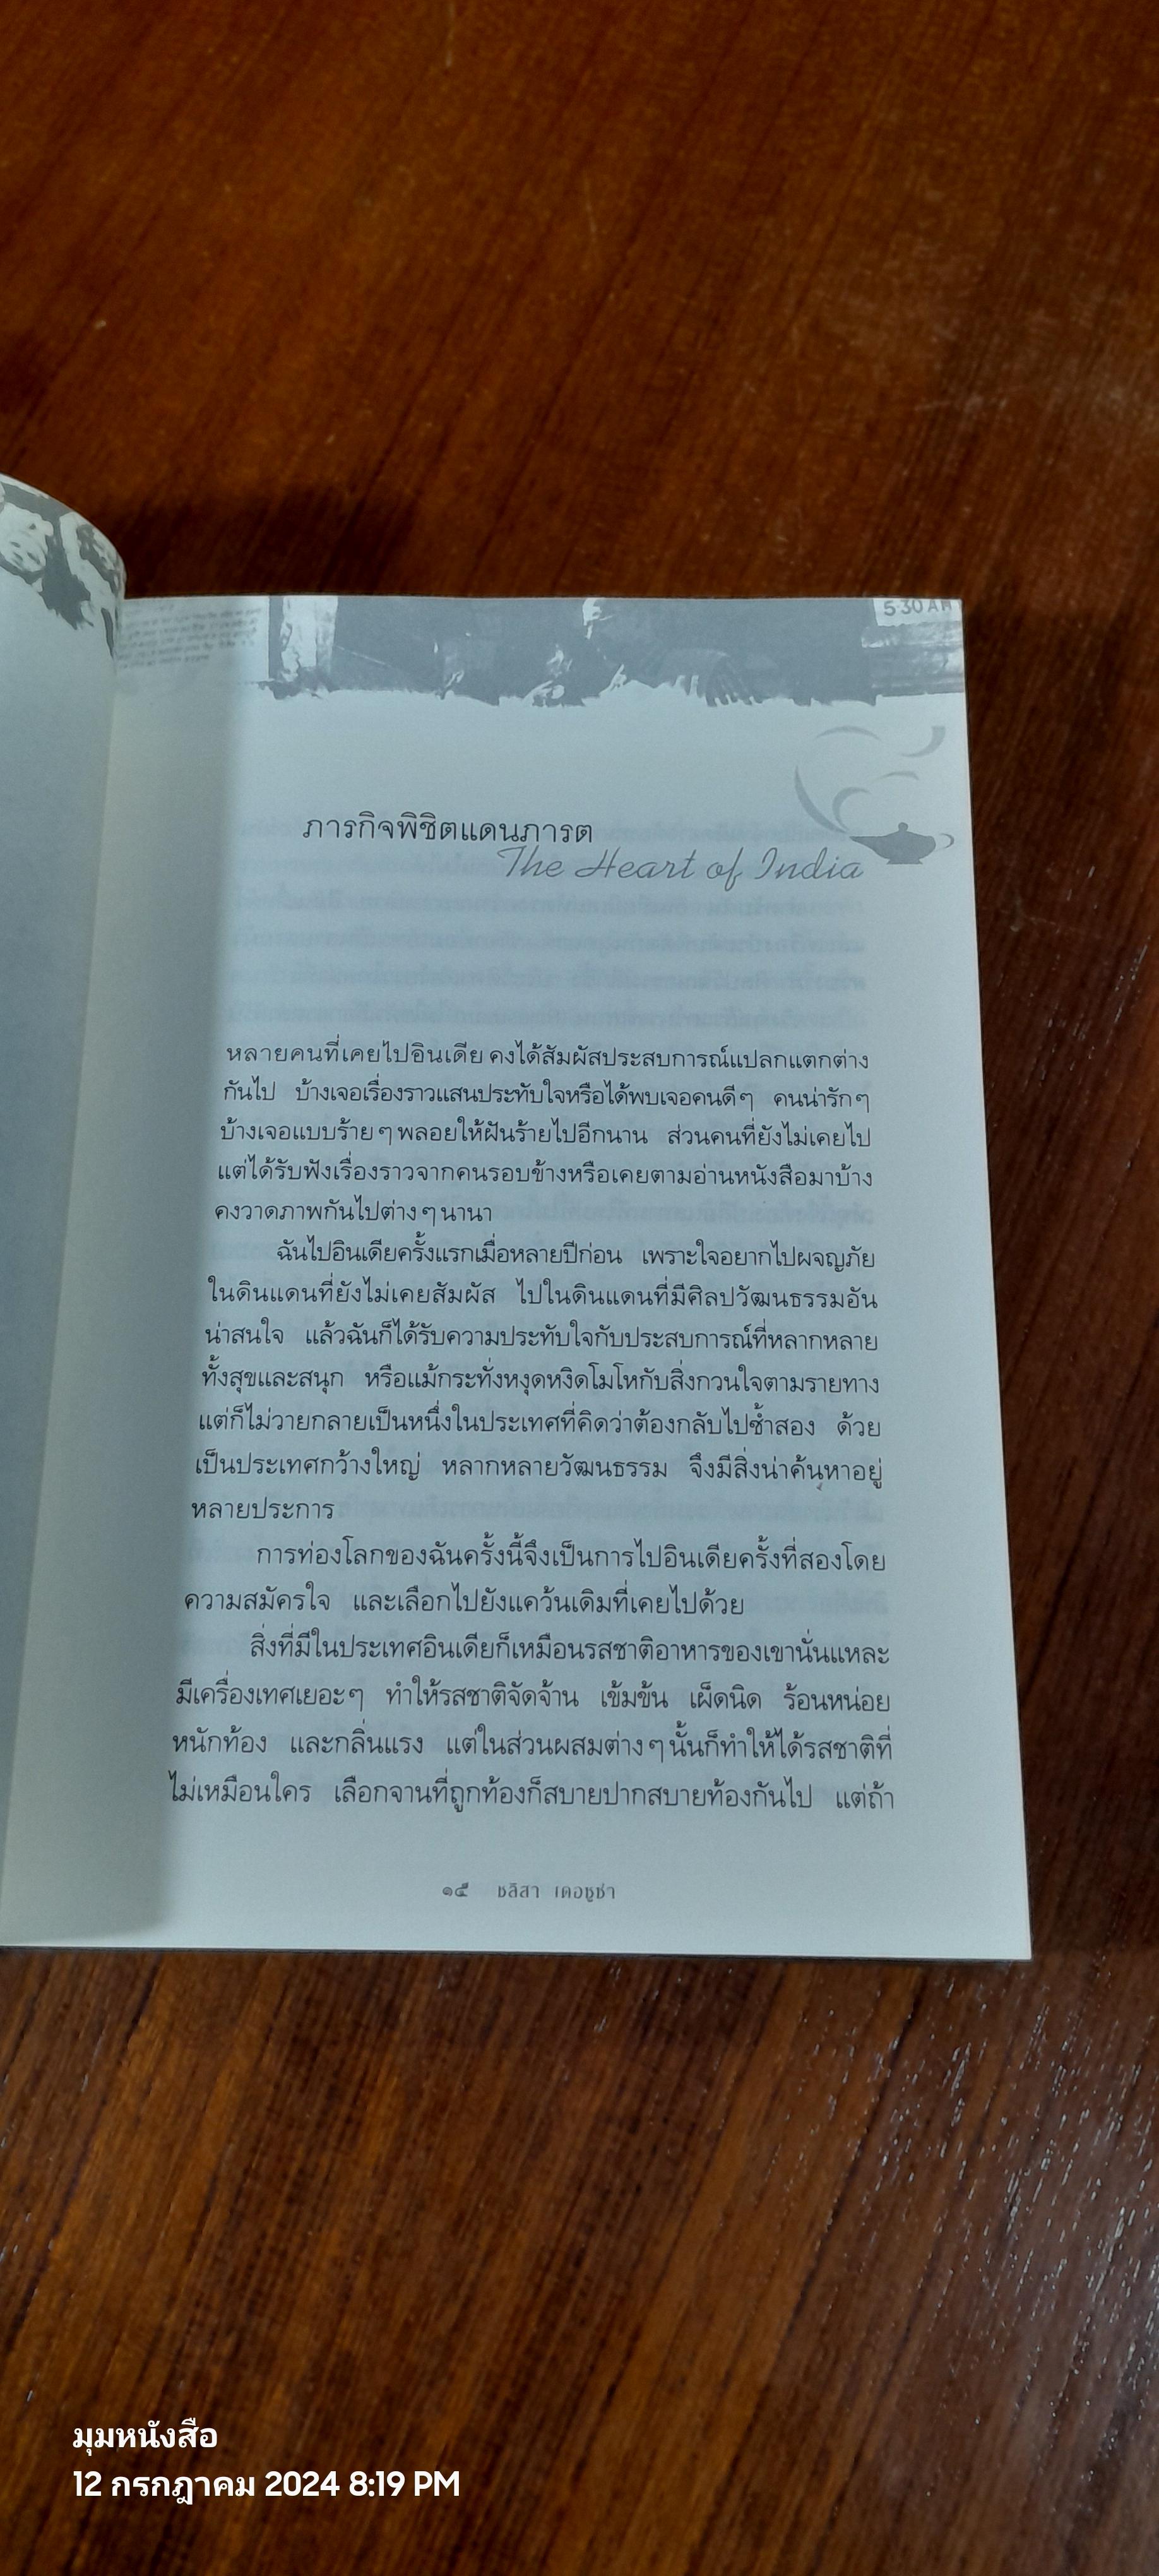 5:30 AM
ภารกิจพิชิตแดนภารต
The Heart of India
หลายคนที่เคยไปอินเดีย คงได้สัมผัสประสบการณ์แปลกแตกต่าง
กันไป บ้างเจอเรื่องราวแสนประทับใจหรือได้พบเจอคนดีๆ คนน่ารักๆ
บ้างเจอแบบร้ายๆ พลอยให้ฝันร้ายไปอีกนาน ส่วนคนที่ยังไม่เคยไป
แต่ได้รับฟังเรื่องราวจากคนรอบข้างหรือเคยตามอ่านหนังสือมาบ้าง
คงวาดภาพกันไปต่างๆ นานา
ฉันไปอินเดียครั้งแรกเมื่อหลายปีก่อน เพราะใจอยากไปผจญภัย
ในดินแดนที่ยังไม่เคยสัมผัส ไปในดินแดนที่มีศิลปวัฒนธรรมอัน
น่าสนใจ แล้วฉันก็ได้รับความประทับใจกับประสบการณ์ที่หลากหลาย
ทั้งสุขและสนุก หรือแม้กระทั่งหงุดหงิดโมโหกับสิ่งกวนใจตามรายทาง
แต่ก็ไม่วายกลายเป็นหนึ่งในประเทศที่คิดว่าต้องกลับไปซ้ำสอง ด้วย
เป็นประเทศกว้างใหญ่ หลากหลายวัฒนธรรม จึงมีสิ่งน่าค้นหาอยู่
หลายประการ
การท่องโลกของฉันครั้งนี้จึงเป็นการไปอินเดียครั้งที่สองโดย
ความสมัครใจ และเลือกไปยังแคว้นเดิมที่เคยไปด้วย
สิ่งที่มีในประเทศอินเดียก็เหมือนรสชาติอาหารของเขานั่นแหละ
มีเครื่องเทศเยอะๆ ทำให้รสชาติจัดจ้าน เข้มข้น เผ็ดนิด ร้อนหน่อย
หนักท้อง และกลิ่นแรง แต่ในส่วนผสมต่างๆ นั้นก็ทำให้ได้รสชาติที่
ไม่เหมือนใคร เลือกจานที่ถูกท้องก็สบายปากสบายท้องกันไป แต่ถ้า
๑๕ ชลิสา เดอซูซ่า
มุมหนังสือ
12 กรกฎาคม 2024 8:19 PM